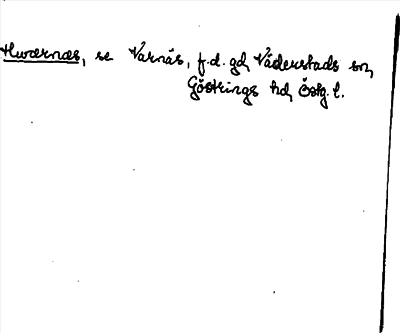 Hwærnæs, se Varnäs, f.d. gd, Väderstads sn,
Göstrings hd, Östg. l.